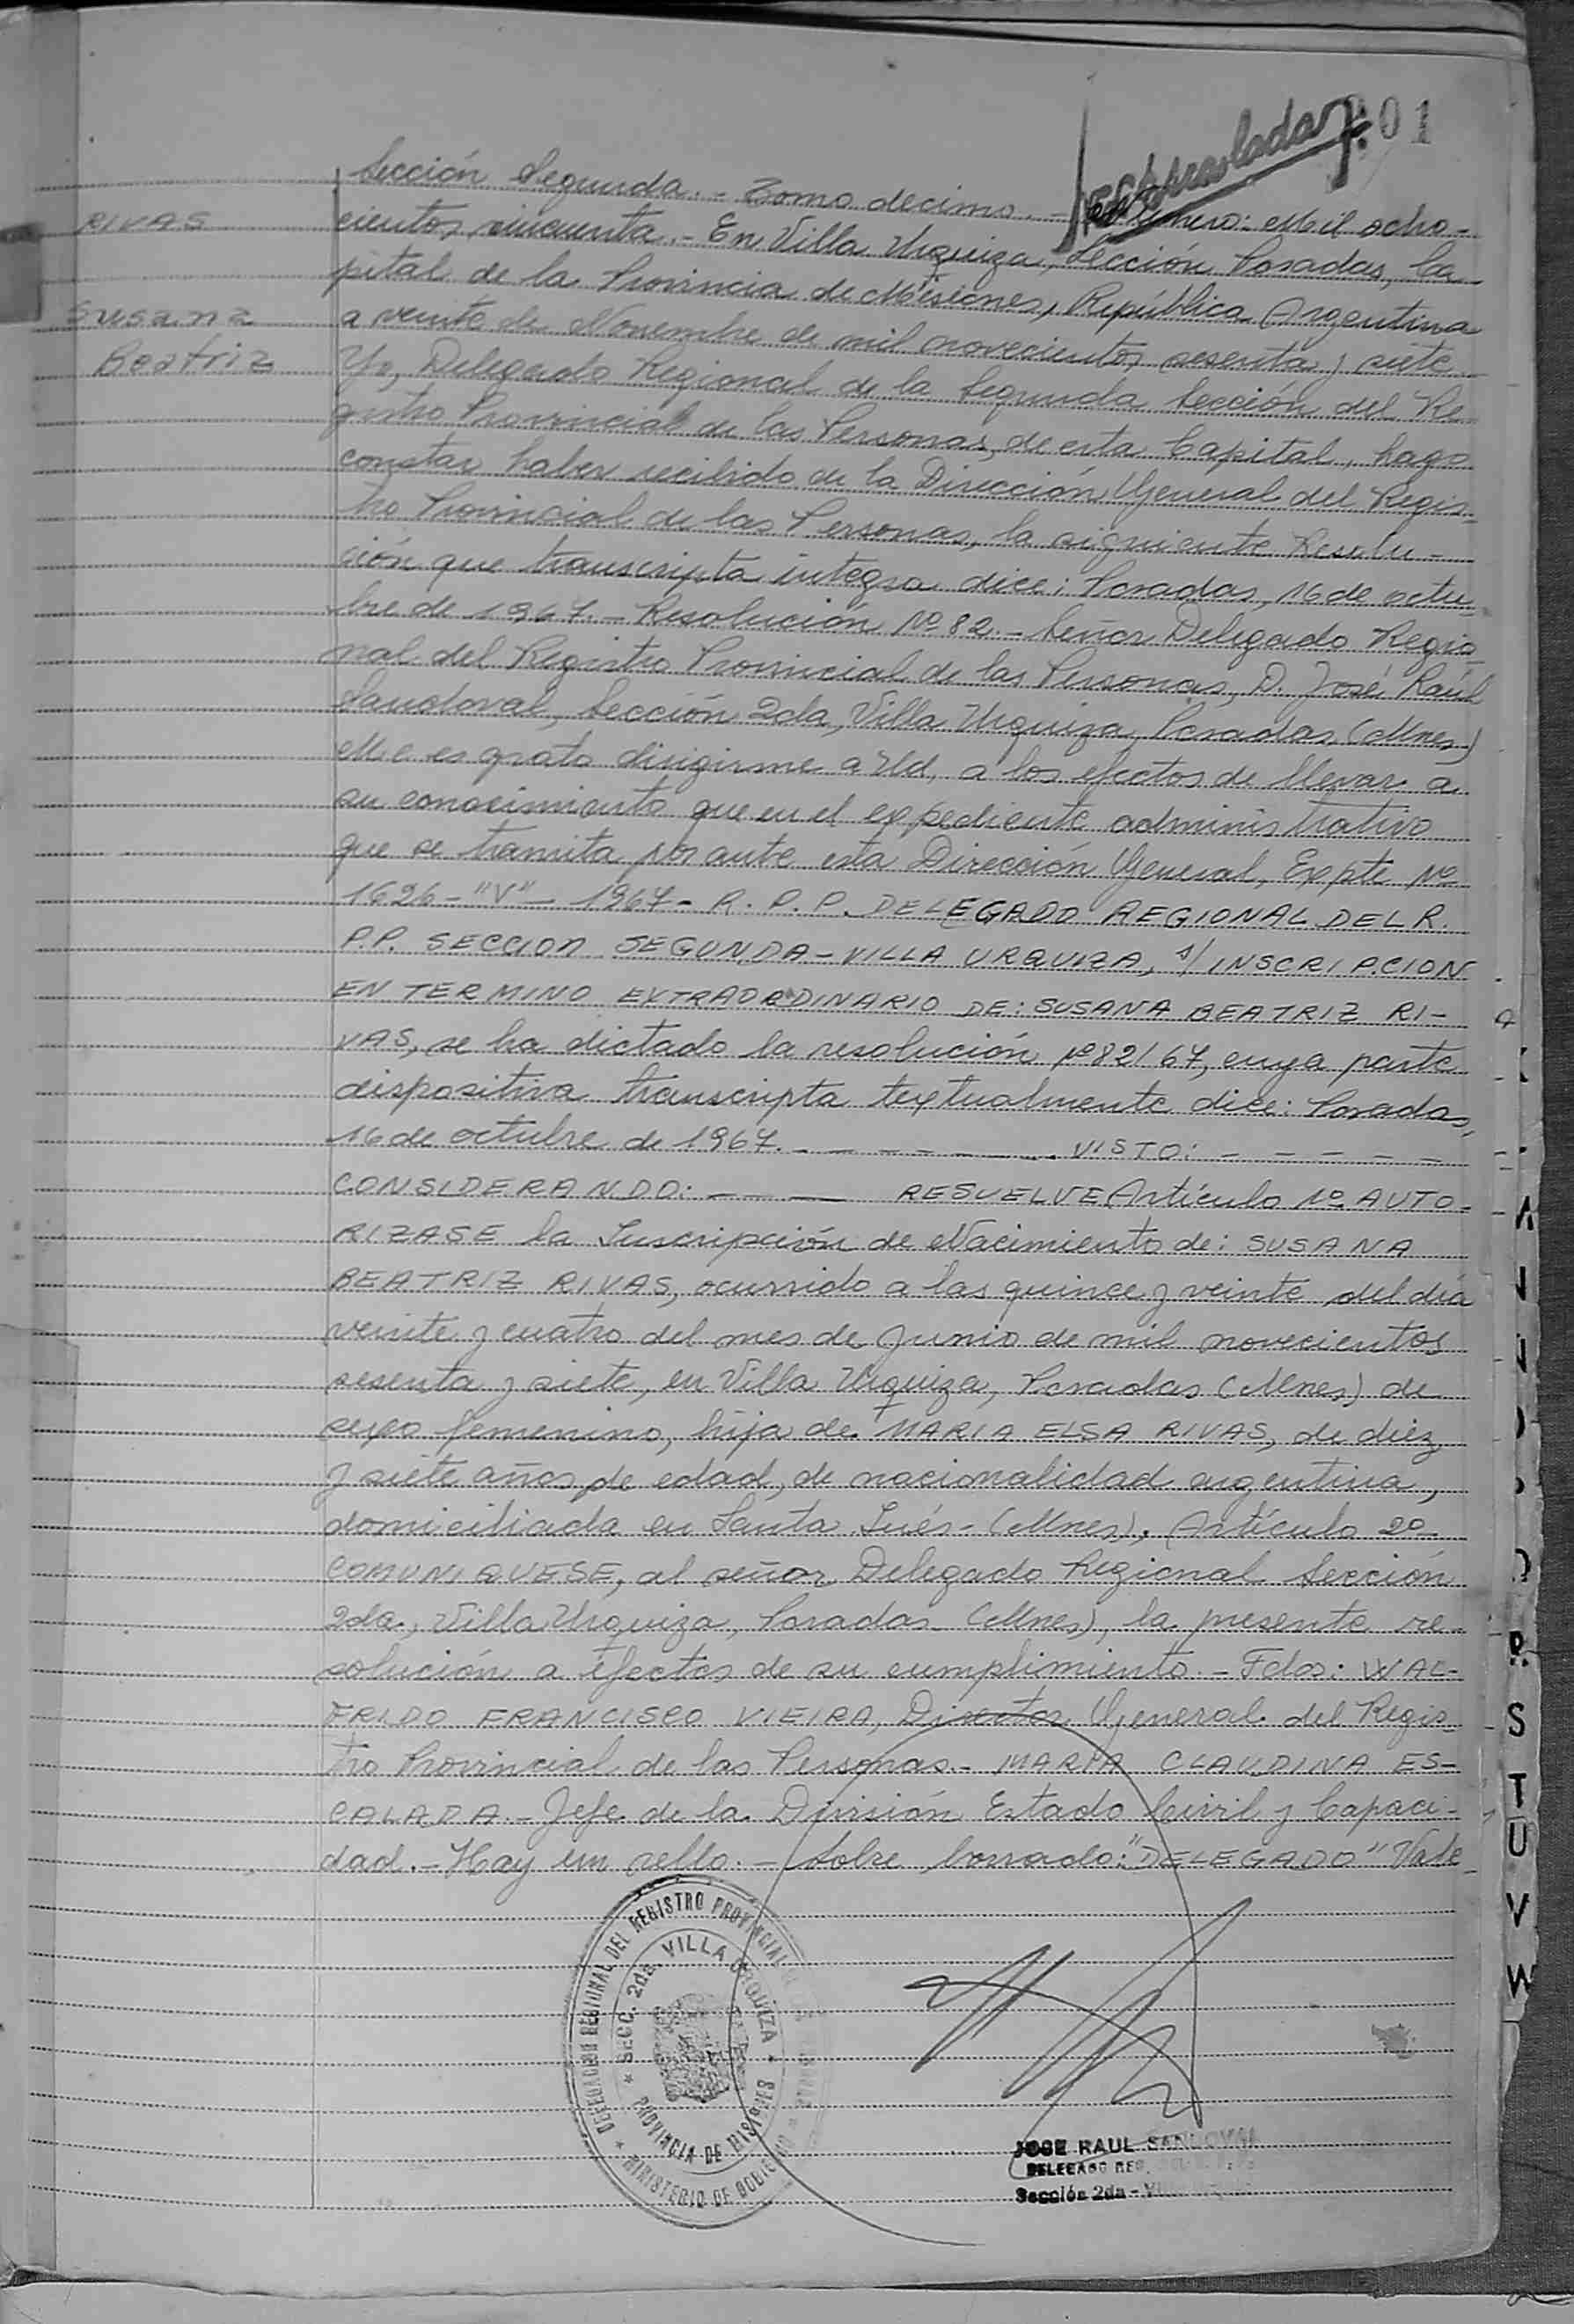 trasladar
01
Sección Segunda.- Tomo decimo.- Número: Mil ocho-
RIVAS
cientos cincuenta.- En Villa Urquiza, Sección Posadas, Ca-
pital de la Provincia de Misiones, República Argentina
Susana
a veinte de Noviembre de mil novecientos sesenta y siete
Beatriz
Yo, Delegado Regional de la Segunda Sección del Re-
gistro Provincial de las Personas, de esta Capital, hago
constar haber recibido de la Dirección General del Regis-
tro Provincial de las Personas, la siguiente Resolu-
ción que transcripta integra dice: Posadas, 16 de octu-
bre de 1967.- Resolución Nº 82.- Señor Delegado Regio-
nal del Registro Provincial de las Personas, D. José Raúl
Sandoval, Sección 2da, Villa Urquiza, Posadas (Mnes)
Me es grato dirigirme a Ud, a los efectos de llevar a
su conocimiento que en el expediente administrativo
que se tramita por ante esta Dirección General, Expte Nº
1626-"V"- 1967- R. P. P. DELEGADO REGIONAL DEL R.
P.P. SECCION SEGUNDA-VILLA URQUIZA, s/ INSCRIPCION
EN TERMINO EXTRAORDINARIO DE: SUSANA BEATRIZ RI-
VAS, se ha dictado la resolución Nº 82/67, cuya parte
dispositiva transcripta textualmente dice: Posadas,
16 de octubre de 1967. - - - - - - VISTO: - - - - -
CONSIDERANDO: - - - RESUELVE Artículo 1º AUTO-
RIZASE la Inscripción de Nacimiento de: SUSANA
BEATRIZ RIVAS, ocurrido a las quince y veinte del día
veinte y cuatro del mes de Junio de mil novecientos
sesenta y siete, en Villa Urquiza, Posadas (Mnes) de
sexo femenino, hija de MARIA ELSA RIVAS, de diez
y siete años de edad, de nacionalidad argentina,
domiciliada en Santa Inés- (Mnes). Artículo 2º
COMUNIQUESE, al señor Delegado Regional Sección
2da., Villa Urquiza, Posadas (Mnes), la presente re-
solución a efectos de su cumplimiento.- Fdos: WAL-
FRIDO FRANCISCO VIEIRA, Director General del Regis-
tro Provincial de las Personas.- MARIA CLAUDINA ES-
CALADA.- Jefe de la División Estado Civil y Capaci-
dad.- Hay un sello.- Sobre borrado: "DELEGADO" Vale
DELEGACION REGIONAL DEL REGISTRO PROVINCIAL
SECC. 2da. VILLA URQUIZA
PROVINCIA DE MISIONES
MINISTERIO DE GOBIERNO
JOSE RAUL SANDOVAL
DELEGADO REG.
Sección 2da -
R
S
T
U
V
W